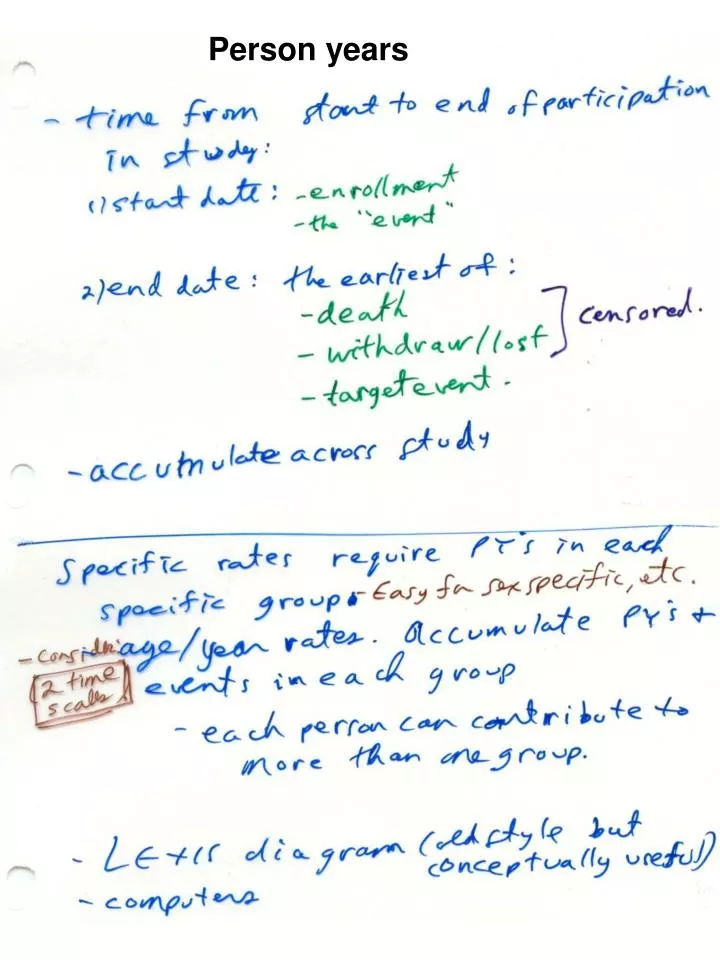 Person years
- time from start to end of participation
in study:
1) start date: - enrollment
- the "event"
2) end date: the earliest of:
- death
- withdraw/lost ] censored.
- target event.
- accumulate across study
Specific rates require PY's in each
specific group - Easy for sex specific, etc.
- Consider age/year rates. Accumulate PY's +
2 time scales events in each group
- each person can contribute to
more than one group.
- LEXIS diagram (old style but
conceptually useful)
- computers